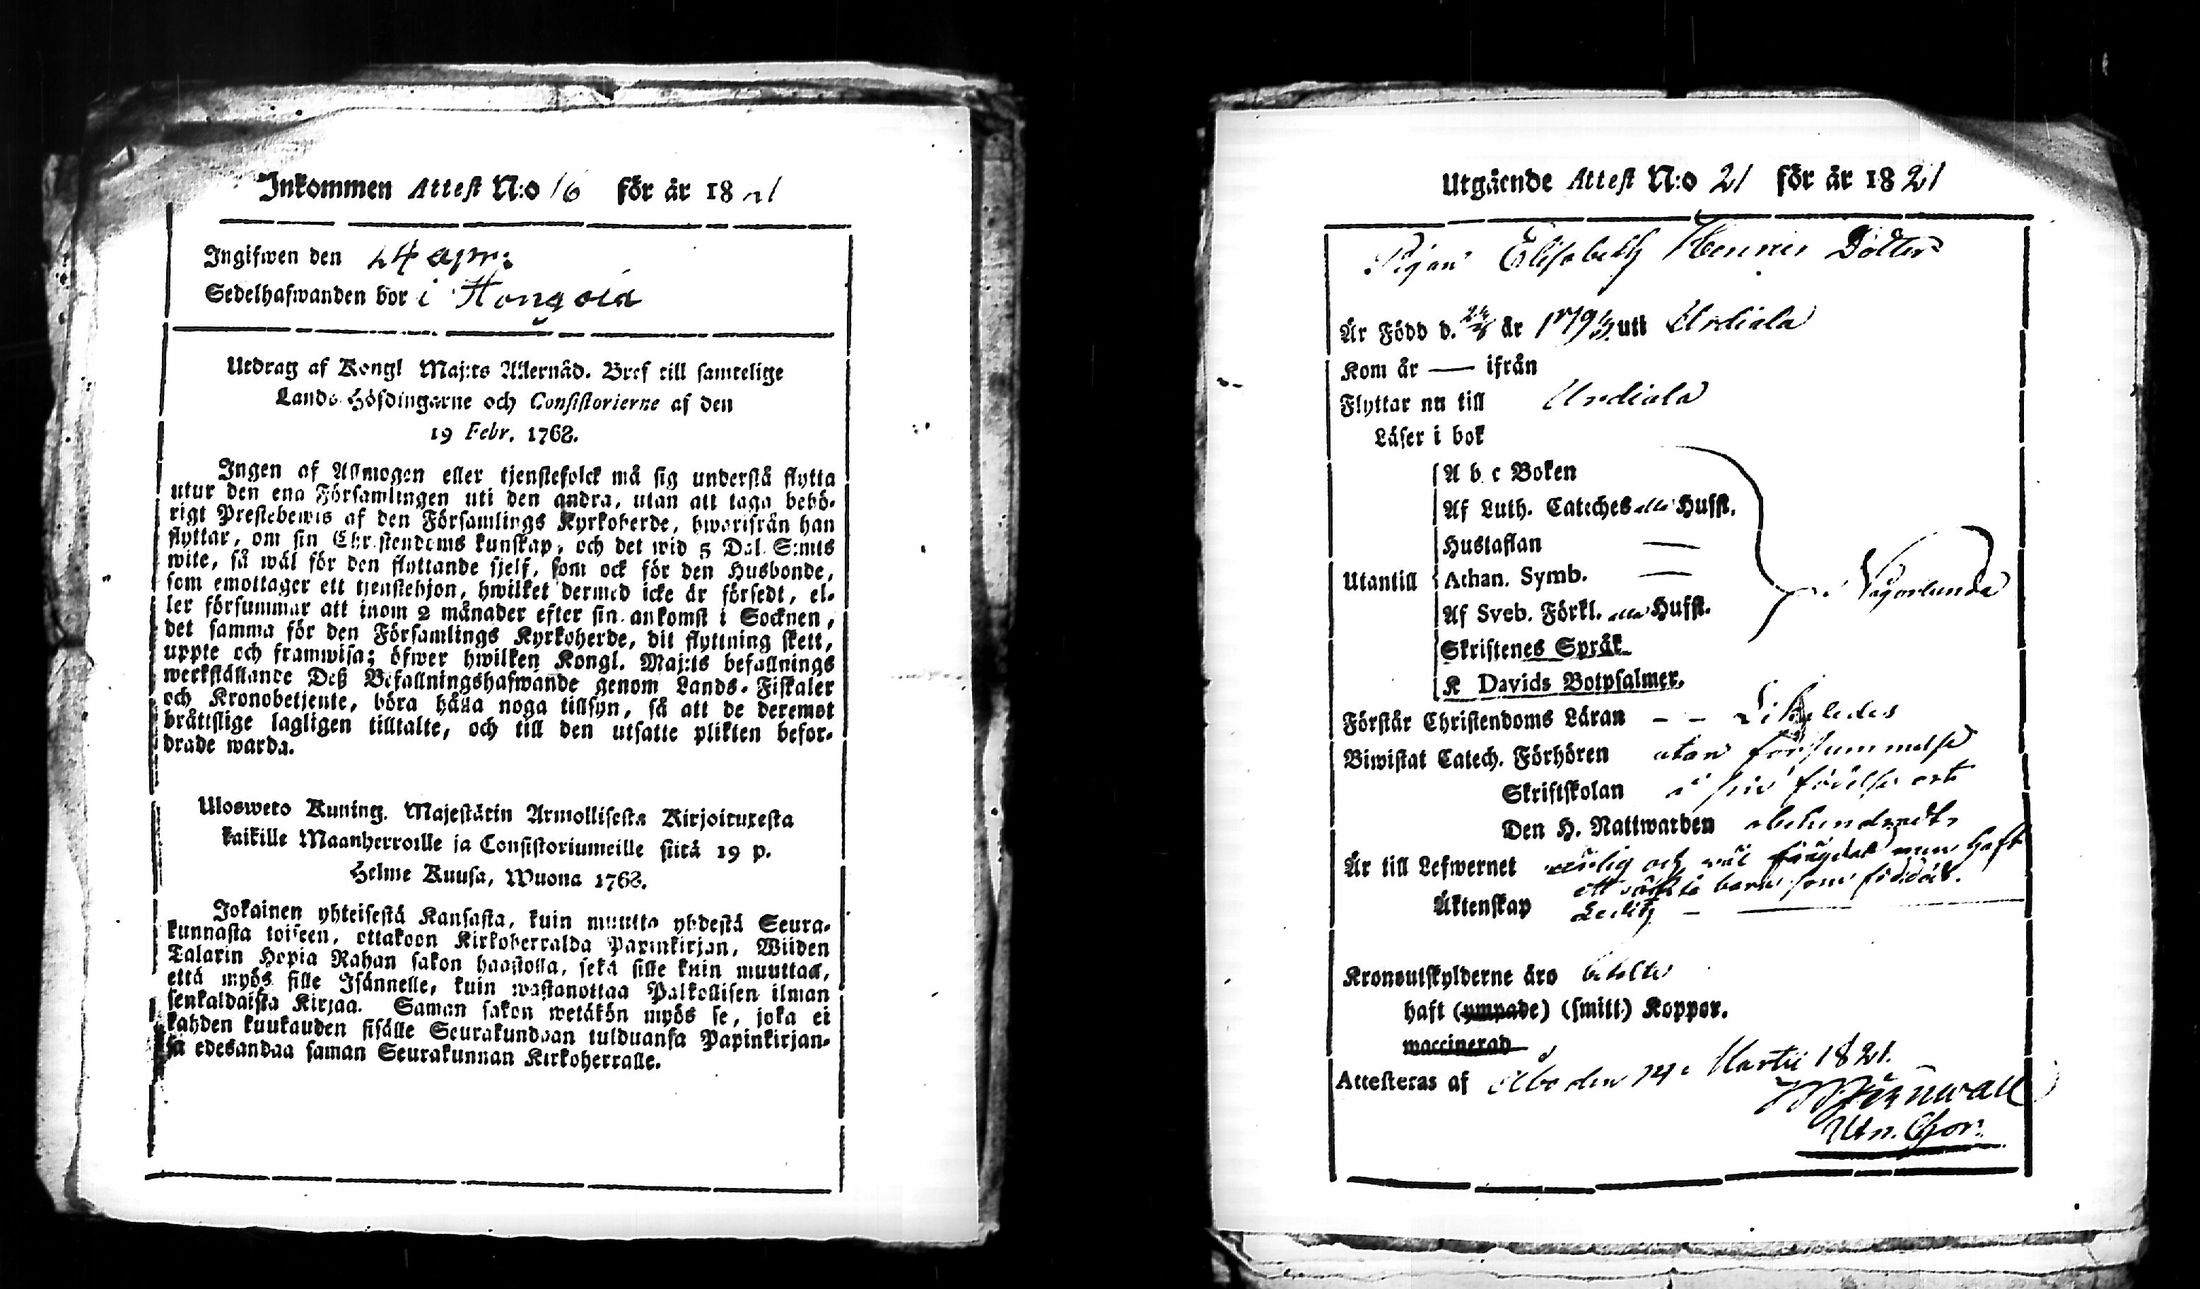 Inkommen Attest N:o 16 för år 1821
Ingifwen den 24 apr:
Sedelhafwanden bor i Hongoia
Utdrag af Kongl Maj:ts Allernåd. Bref till samtelige
Lands Höfdingarne och Consistorierne af den
19 Febr. 1768.
Ingen af Allmogen eller tjenstefolck må sig understå flytta
utur den ena Församlingen uti den andra, utan att taga behö-
rigt Prestebewis af den Församlings Kyrkoherde, hwarifrån han
flyttar, om sin Christendoms kunskap, och det wid 5 Dal. S:mts
wite, så wäl för den flyttande sjelf, som ock för den Husbonde,
som emottager ett tjenstehjon, hwilket dermed icke är försedt, el-
ler försummar att inom 2 månader efter sin ankomst i Socknen,
det samma för den Församlings Kyrkoherde, dit flyttning skett,
uppte och framwisa; öfwer hwilken Kongl. Maj:ts befallnings
werkställande Deß Befallningshafwande genom Lands-Fiskaler
och Kronobetjente, böra hålla noga tillsyn, så att de deremot
bråttslige lagligen tilltalte, och till den utsatte plikten befor-
drade warda.
Ulosweto Kuning. Majestätin Armollisesta Kirjoituxesta
kaikille Maanherroille ja Consistoriumeille siitä 19 p.
Helme Kuusa, Wuona 1768.
Jokainen yhteisestä Kansasta, kuin muutta yhdestä Seura-
kunnasta toiseen, ottakoon Kirkoherralda Papinkirjan, Wiiden
Talarin Hopia Rahan sakon haastolla, sekä sille kuin muuttaa,
että myös sille Isännelle, kuin wastanottaa Palkollisen ilman
senkaldaista Kirjaa. Saman sakon wetäkön myös se, joka ei
kahden kuukauden sisälle Seurakundaan tulduansa Papinkirjan-
sa edesandaa saman Seurakunnan Kirkoherralle.
Utgående Attest N:o 21 för år 1821
Pigan Elisabeth Henrics Dotter
Är Född d. år 179 uti Urdiala
Kom år — ifrån
Flyttar nu till Urdiala
Läser i bok
A b c Boken
Af Luth. Cateches Husst.
Hustaflan —
Utantill Athan. Symb. —
Af Sveb. Förkl. Husst.
Någorlunda
Skriftenes Språk
K Davids Botpsalmer.
Förstår Christendoms Läran - - Likaledes
Biwistat Catech. Förhören utan försummelse
Skriftskolan i sin födelse ort
Den H. Nattwarden obehindradt
Är till Lefwernet ärlig och wäl frägdat men haft
ett oäckta barn som är dödt.
Äktenskap Ledig —
Kronoutskylderne äro betalte
haft (ympade) (smitt) Koppor.
waccinerad
Attesteras af Åbo den 14 Martii 1821.